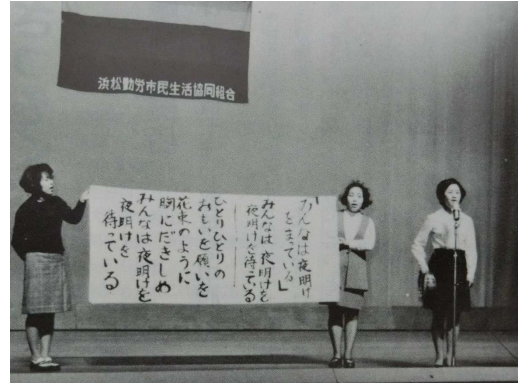 浜松勤労市民生活協同組合
「みんなは夜明け
を待っている」
みんなは夜明けを
夜明けを待っている
ひとりひとりの
おもいを願いを
花束のように
胸にだきしめ
みんなは夜明けを
夜明けを
待っている